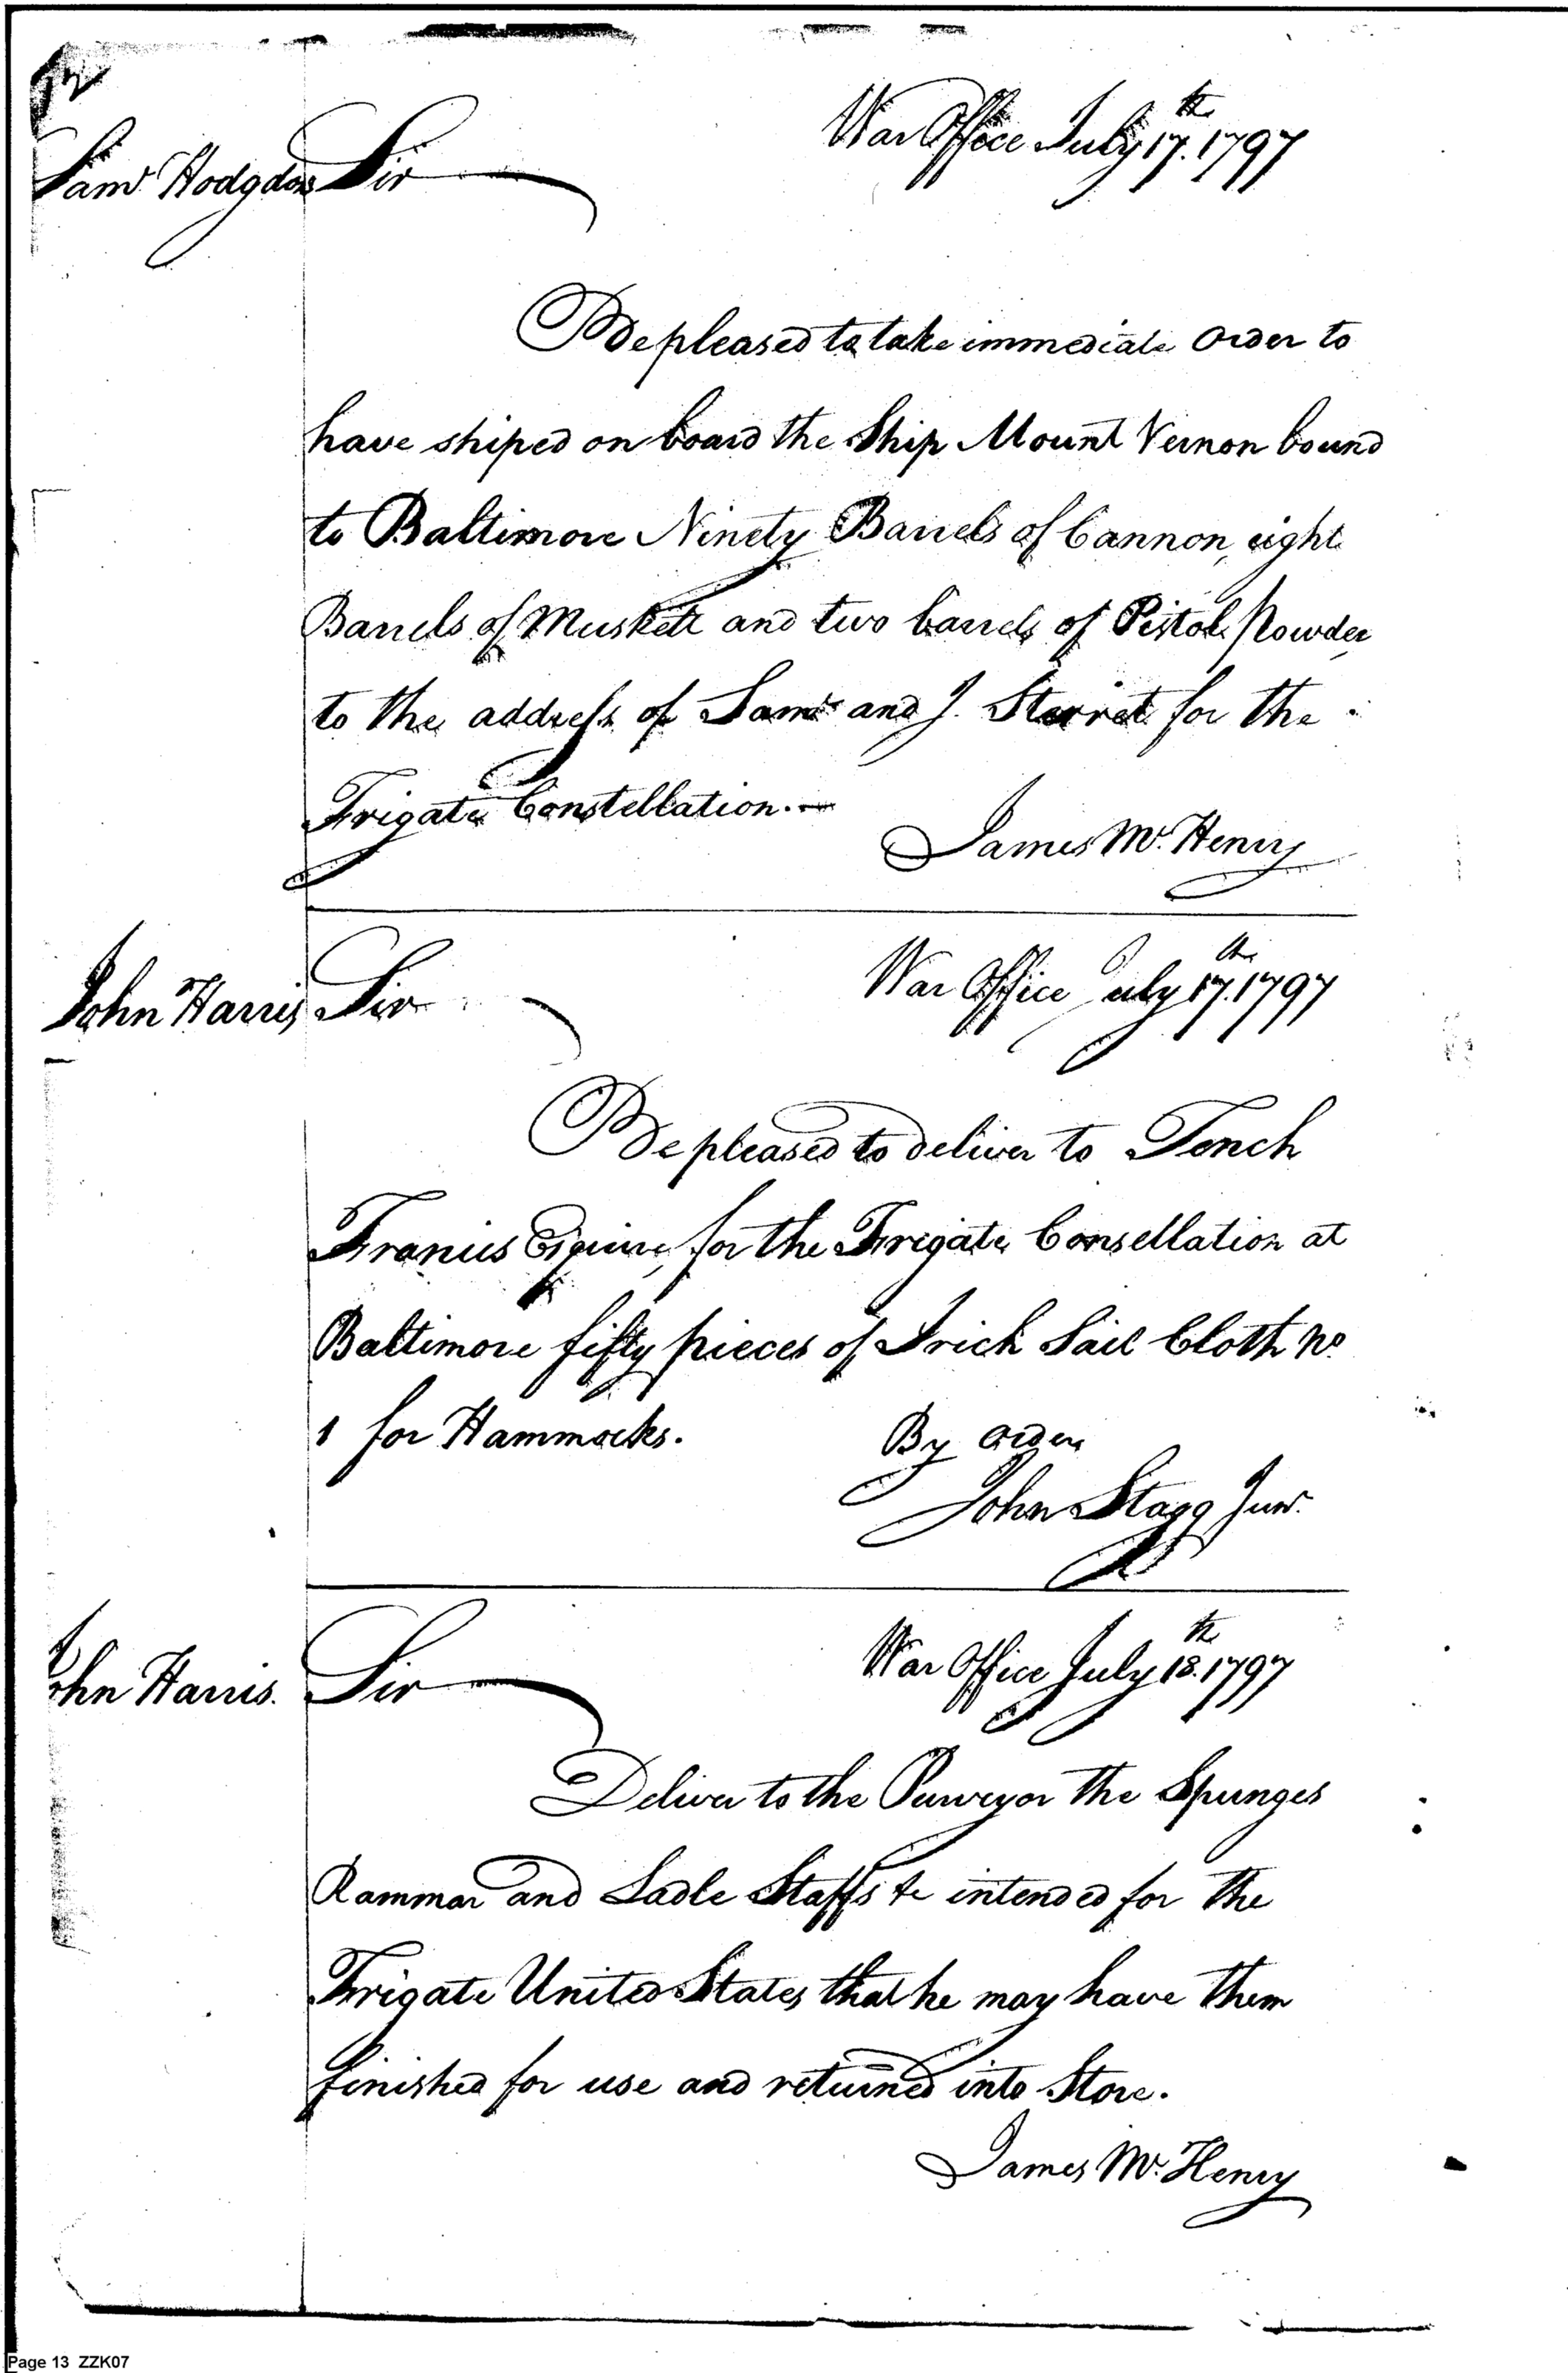 War Office July 17th. 1797
Saml Hodgdon Sir
Be pleased to take immediate Order to
have shiped on board the Ship Mount Vernon bound
to Baltimore Ninety Barrels of Cannon, eight
Barrels of Muskett and two barrels of Pistol Powder,
to the address of Saml and J. Sterret for the
Frigate Constellation.—
James McHenry
War Office July 17th. 1797
John Harris Sir
Be pleased to deliver to Tench
Francis Esquire, for the Frigate Consellation at
Baltimore fifty pieces of Irich Sail Cloth No
1 for Hammocks.
By Order
John Stagg Junr.
War Office July 18th. 1797
John Harris. Sir
Deliver to the Purveyor the Spunges
Rammar and Ladle Staffs &c intended for the
Frigate United States that he may have them
finished for use and returned into Store.
James McHenry
Page 13 ZZK07